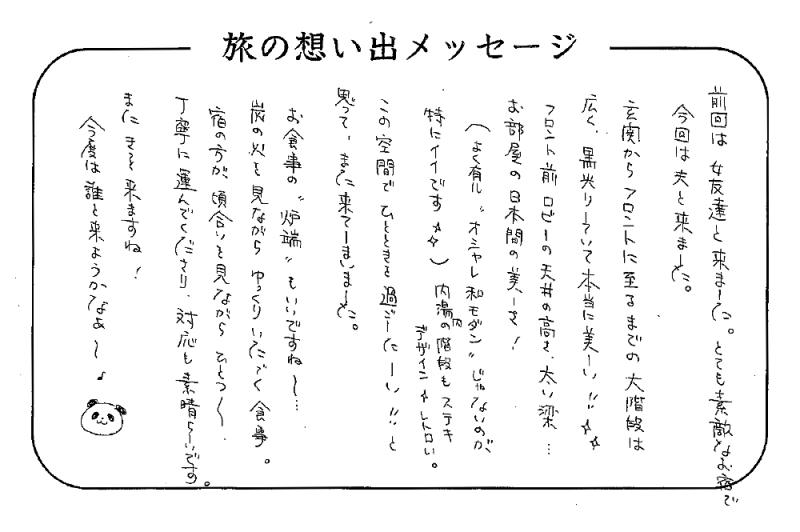 旅の想い出メッセージ
前回は 女友達と来ました。とても素敵なお宿で
今回は夫と来ました。
玄関からフロントに至るまでの大階段は
広く、黒光りしていて本当に美しい!!☆☆
フロント前ロビーの天井の高さ、太い梁…
お部屋の日本間の美しさ!
(よく有ル〝オシャレ和モダン〟じゃないのが、
特にイイです☆☆) 内湯の階段もステキ
デザイン☆レトロい。
この空間でひとときを過ごしたーい!!と
思って、また来てしまいました。
お食事の〝炉端〟もいいですね〜…
炭の火を見ながらゆっくりいただく食事。
宿の方が、頃合いを見ながらひとつ〱、
丁寧に運んでくださり、対応も素晴らしいです。
またきっと来ますね!
今度は誰と来ようかなぁ〜♪